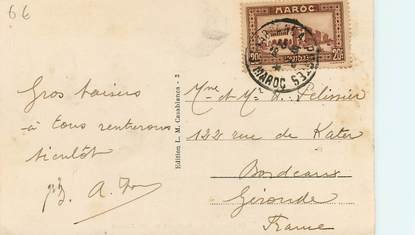 66
MAROC
20c
MAROC
Gros baisers
à tous rentrerons
bientôt
Edition L. M. Casablanca - 2
Mme et Mr A. Pelissier
122 rue de Kater
Bordeaux
Gironde
France